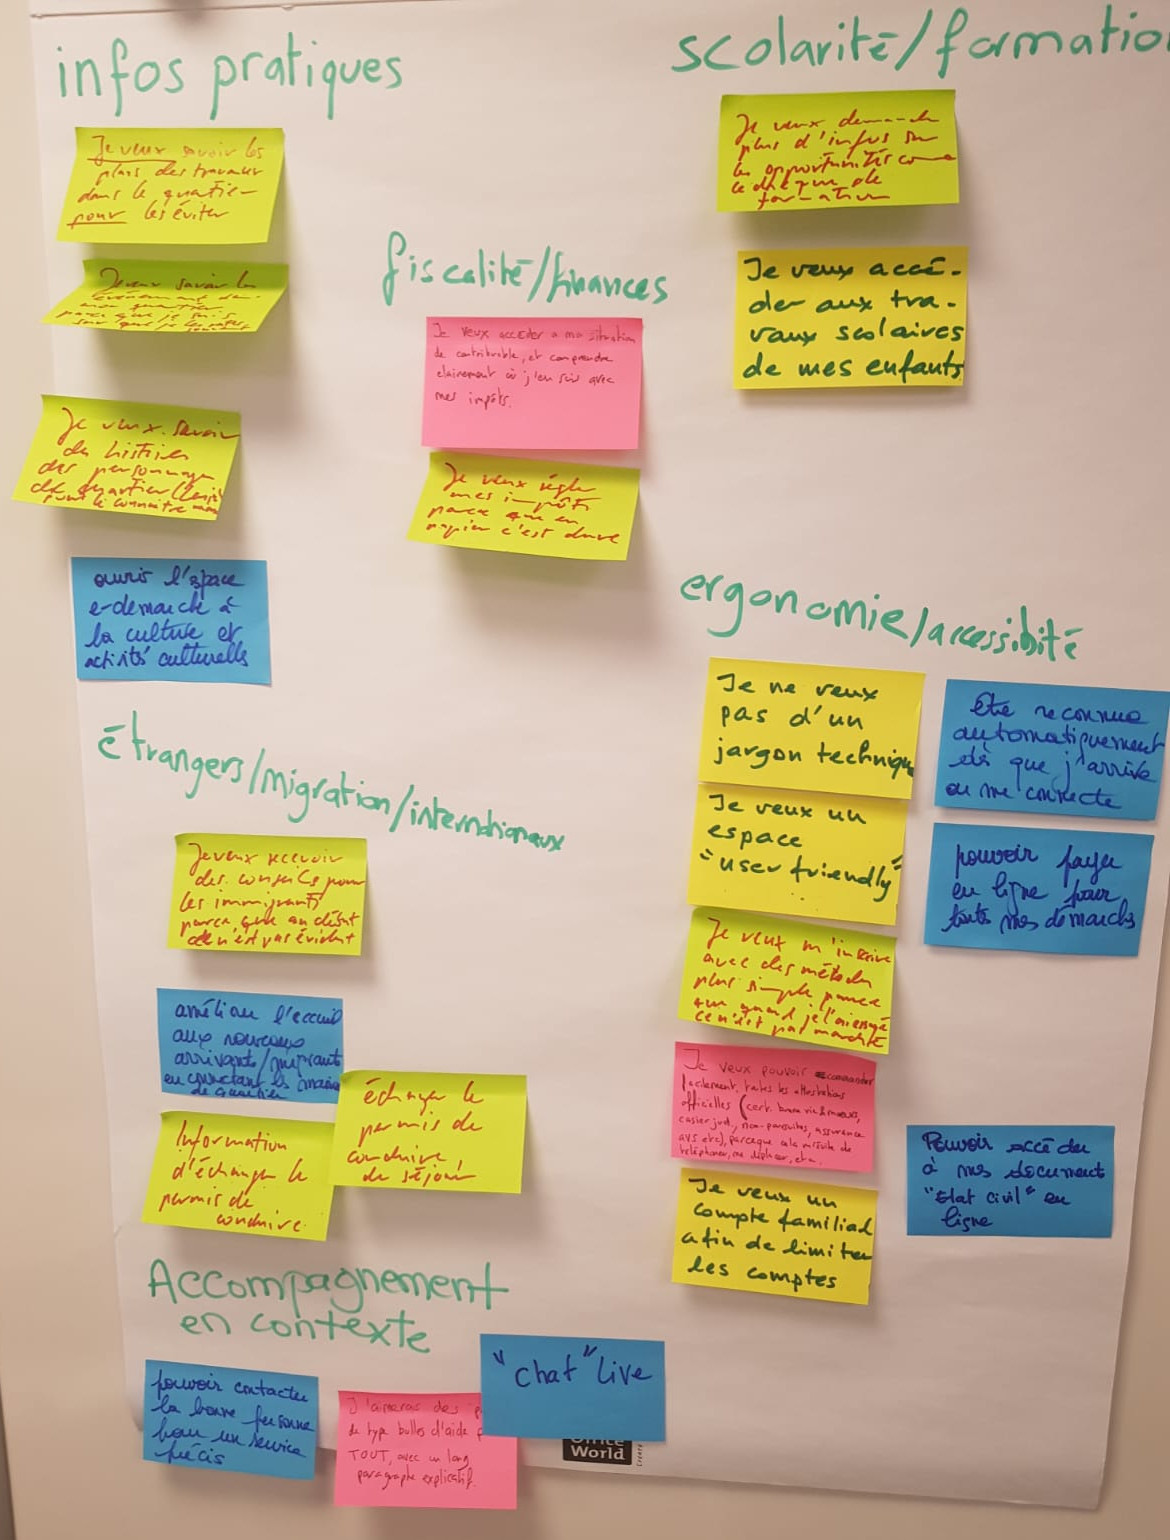 infos pratiques
Je veux savoir les
plans des travaux
dans le quartier
pour les éviter
Je veux savoir les
évènement
mon quartier
parce que je suis
sur que je les rates
Je veux savoir
des histoires
des personnages
de quartier
pour le connaitre
ouvrir l'espace
e-demarche à
la culture et
activités culturelles
fiscalité/finances
Je veux accéder a ma situation
de contribuable, et comprendre
clairement où j'en suis avec
mes impôts.
Je veux régler
mes impôts
parce que en
papier c'est dure
scolarité/formatio
Je veux demande
plus d'infos sur
les opportunités
chèque de
formation
Je veux accé-
der aux tra-
vaux scolaires
de mes enfants
ergonomie/accessibité
Je ne veux
pas d'un
jargon techniqu
Je veux un
espace
"user friendly"
Je veux m'inscrire
avec des méthodes
plus simple parce
que quand je l'ai essayé
ce n'est pas marché
Je veux pouvoir commander
facilement toutes les attestations
officielles (cert. bonne vie & moeurs,
casier jud., non-poursuites, assurance
AVS etc), parceque cela nécessite de
téléphoner, me déplacer, etc.
Je veux un
compte familial
afin de limiter
les comptes
être reconnue
automatiquement
dès que j'arrive
ou me connecte
pouvoir payer
en ligne pour
toutes mes démarches
Pouvoir accéder
à mes document
"Etat civil" en
ligne
étrangers/migration/internationaux
Je veux recevoir
des conseils pour
les immigrants
parce que au début
ce n'est pas évident
améliorer l'accueil
aux nouveaux
arrivants/migrants
en connectant les maisons
de quartier
échanger le
permis de
conduire
de séjour
Information
d'échanger le
permis de
conduire
Accompagnement
en contexte
pouvoir contacter
la bonne personne
pour un service
précis
J'aimerais des
de type bulles d'aide p
TOUT, avec un long
paragraphe explicatif.
"chat" live
Office
World